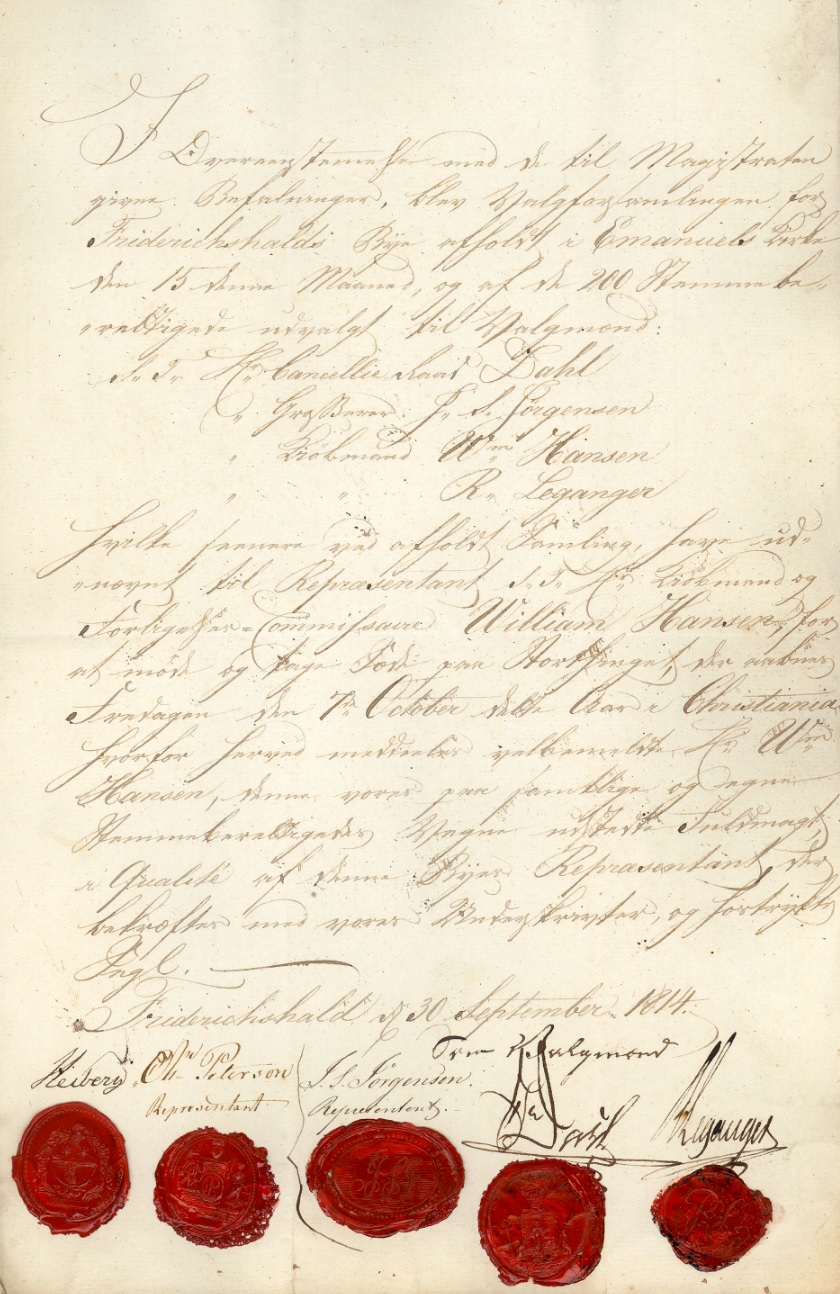 I Overeensstemmelse med de til Magistraten
givne Befalninger, blev Valgforsamlingen for
Friderichshalds Bye afholdt i Emanuels Kirke
den 15 denne Maaned, og af de 200 Stemmebe-
"rettigede udvalgt til Valgmænd:
S. T. Hr. Cancellie Raad Dahl
" Grosserer J. S. Jörgensen
" Kiöbmand Wm Hansen
" " R. Leganger
hvilke seenere ved afholdt Samling, have ud-
"nævnt til Repræsentant S. T. Hr. Kiöbmand og
Forligelses-Commissaire William Hansen, for
at möde og tage Sæde paa Storthinget, der aabnes
Fredagen den 7de October dette Aar i Christiania
hvorfor herved meddeeles velbemeldte Hr. Wm
Hansen, denne vores paa samtlige og egne
Stemmeberettigedes Vegne udstedte Fuldmagt,
i Qualité af denne Byes Repræsentant, der
bekræftes med vores Underskrivter, og hostrykte
Segl.
Friderichshald d 30 September 1814.
Som Valgmænd
Heiberg Chr Peterson J. S. Jörgensen.
Representant Representant.
Dahl RLeganger